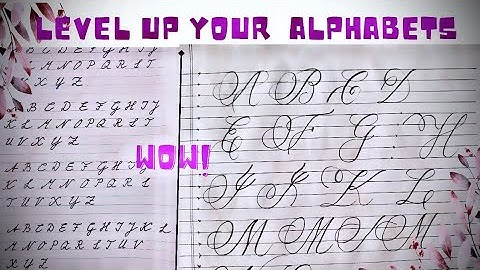 LEVEL UP YOUR ALPHABETS
A B C D E F G H I J
K L M N O P Q R S T
U V X Y Z
A B C D E F G H I J
K L M N O P Q R S T
U V X Y Z
A B C D E F G H I J
K L M N O P Q R S
T U V X Y Z
A B C D E F G H I J K L
M N O P Q R S T U V
X Y Z
WOW!
A B C D
E F G H
I J K L
M M